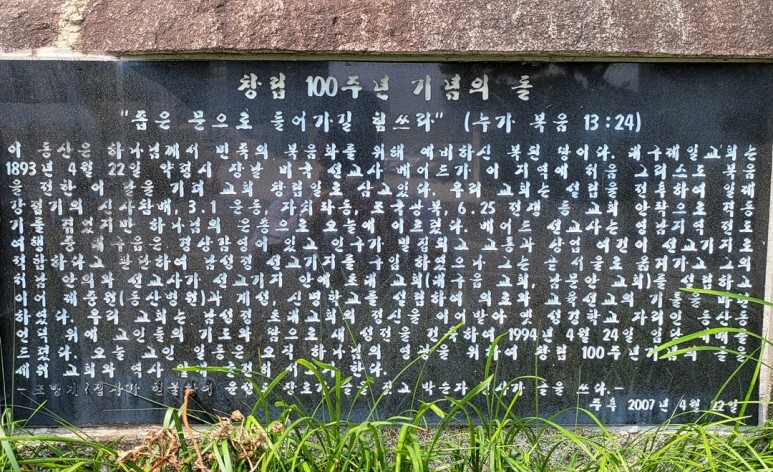 창립 100주년 기념의 돌
"좁은 문으로 들어가길 힘쓰라" (누가 복음 13:24)
이 동산은 하나님께서 민족의 복음화를 위해 예비하신 복된 땅이다. 대구제일교회는
1893년 4월 22일 약령시 장날 미국 선교사 베어드가 이 지역에 처음 그리스도 복음
을 전한 이 날을 기려 교회 창립일로 삼고있다. 우리 교회는 설립 전통하여 일제
강점기의 신사참배, 3.1 운동, 자치파동, 조국광복, 6.25 전쟁 등 교회 안팎으로 격동
기를 겪었지만 하나님의 은총으로 오늘에 이르렀다. 베어드 선교사는 영남지역 전도
여행 중 대구읍은 경상감영이 있고 인구가 밀집되고 교통과 상업 여건이 선교기지로
적합하다고 판단하여 남성정 선교기지를 구입하였으나 그는 곧 서울로 옮기고 그의
처남 안의와 선교사가 선교기지 안에 초대 교회(대구읍 교회, 남문안 교회)를 설립하고
이어 제중원(동산병원)과 계성, 신명학교를 설립하여 의료와 교육선교의 기틀을 마련
하였다. 우리 교회는 남성정 초대교회의 정신을 이어받아 옛 성경학교 자리인 동산동
언덕 위에 교인들의 기도와 땀으로 새 성전을 건축하여 1994년 4월 24일 입당 예배를
드렸다. 오늘 교인 일동은 오직 하나님의 영광을 위하여 창립 100주년 기념의 돌을
세워 교회와 역사
윤성 장로가 글을 짓고 박순자 글을 쓰다.-
주후 2007년 4월 22일